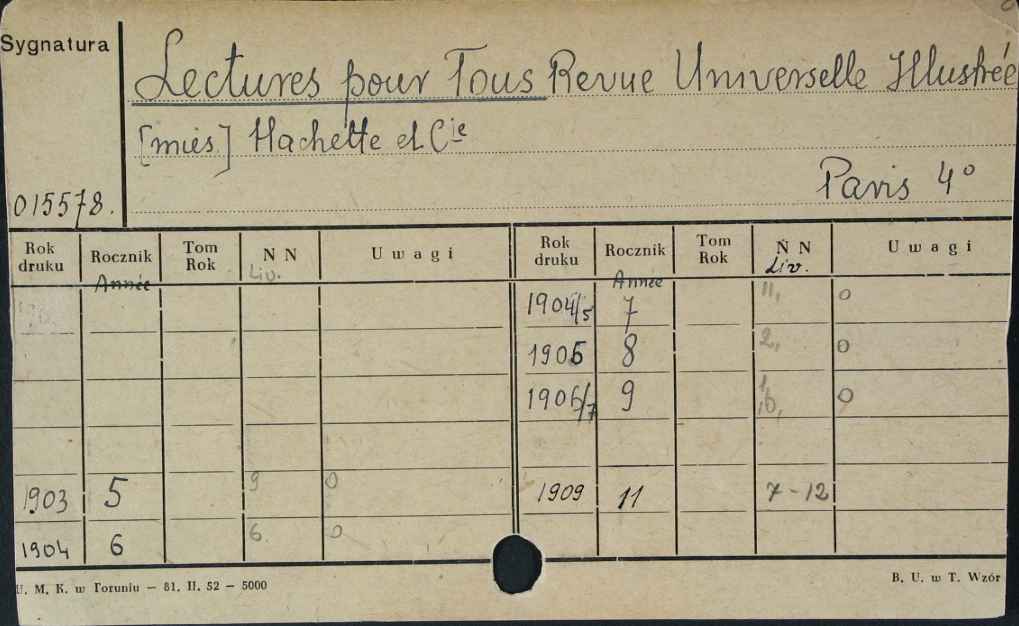 Sygnatura
Lectures pour Tous Revue Universelle Illustrée
[mies.] Hachette et Cie
Paris 4°
015578.
Rok druku Rocznik Tom Rok N N U w a g i Rok druku Rocznik Tom Rok N N U w a g i
Année Liv. Année Liv.
1904/5 7 11, 0
1905 8 2, 0
1906/7 9 1, 10, 0
1903 5 9 0 1909 11 7-12
1904 6 6. 0
U. M. K. w Toruniu — 81. II. 52 — 5000 B. U. w T. Wzór